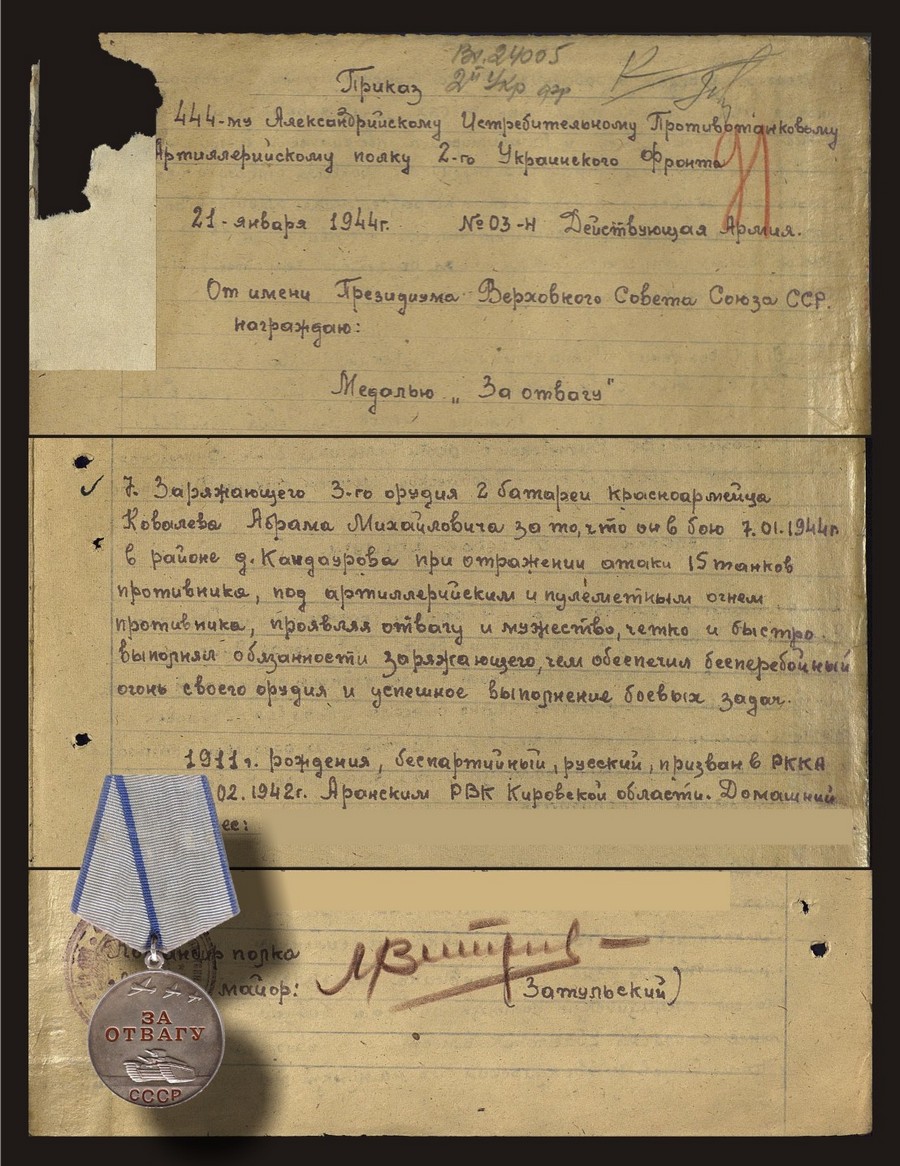 Вх. 24005
2й Укр
Приказ
444-му Александрийскому Истребительному Противотанковому
Артиллерийскому полку 2-го Украинского Фронта
21-января 1944г. № 03-н Действующая Армия.
От имени Президиума Верховного Совета Союза ССР.
награждаю:
Медалью „За отвагу"
7. Заряжающего 3-го орудия 2 батареи красноармейца
Ковалева Абрама Михайловича за то, что он в бою 7.01.1944г.
в районе д. Кандаурова при отражении атаки 15 танков
противника, под артиллерийским и пулеметным огнем
противника, проявляя отвагу и мужество, четко и быстро
выполнял обязанности заряжающего, чем обеспечил бесперебойный
огонь своего орудия и успешное выполнение боевых задач.
1911г. рождения, беспартийный, русский, призван в РККА
02.1942г. Аранским РВК Кировской области. Домашний
Командир полка
майор: (Затульский)
ЗА
ОТВАГУ
СССР